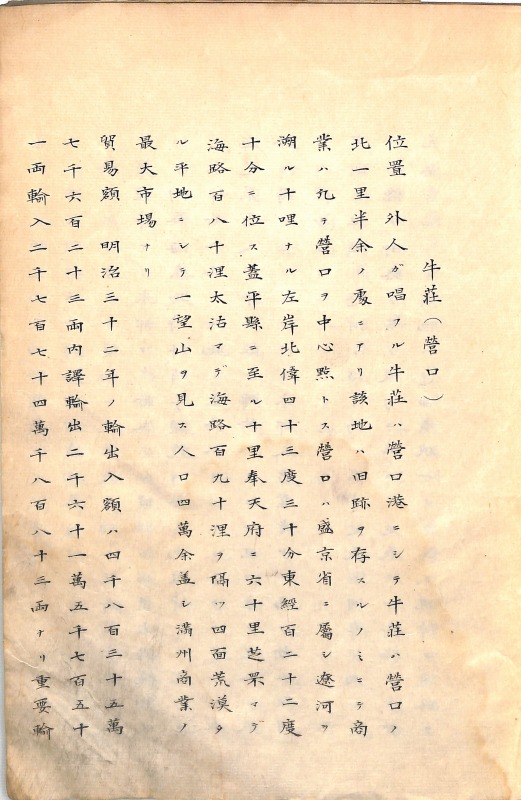 牛莊（營口）
位置　外人ガ唱フル牛莊ハ營口港ニシテ牛莊ハ營口ノ
北一里半余ノ處ニアリ該地ハ旧跡ヲ存スルノミニテ商
業ハ凡テ營口ヲ中心點トス營口ハ盛京省ニ屬シ遼河ヲ
溯ル十哩ナル左岸北偉四十三度三十分東經百二十二度
十分ニ位ス蓋平縣ニ至ル十里奉天府ニ六十里芝罘マデ
海路百八十浬太沽マデ海路百九十浬ヲ隔ツ四面荒漠タ
ル平地ニシテ一望山ヲ見ス人口四萬余蓋シ滿州商業ノ
最大市場ナリ
貿易額　明治三十二年ノ輸出入額ハ四千八百三十五萬
七千六百二十三両内譯輸出二千六十一萬五千七百五十
一両輸入二千七百七十四萬千八百八十三両ナリ重要輸